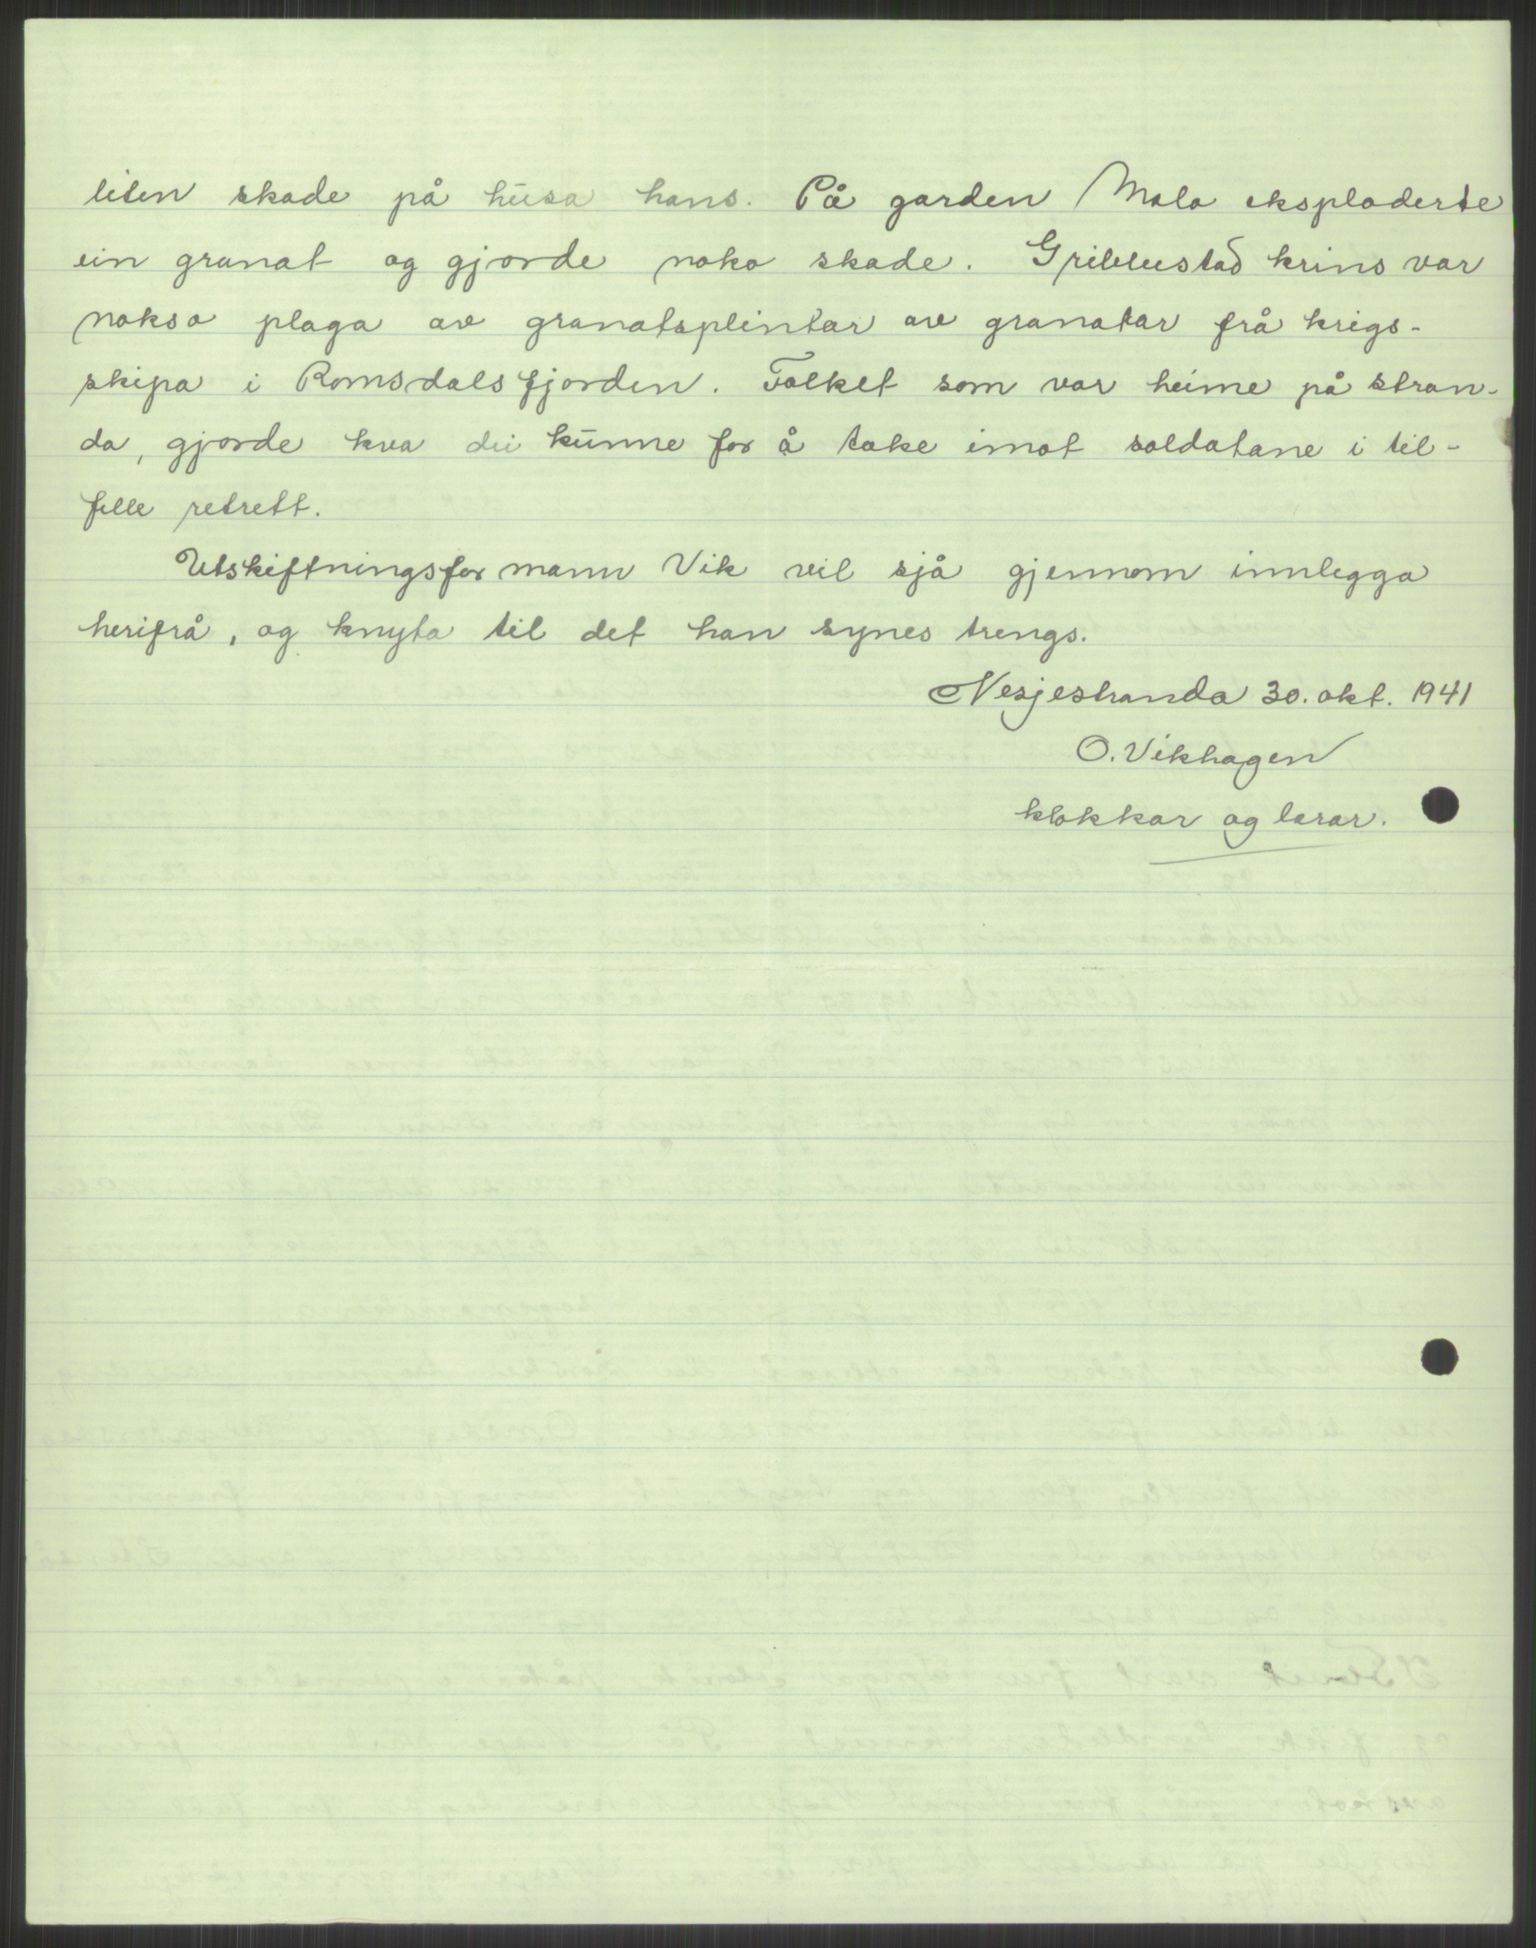 liten skade på husa hans. På garden Mala eksploderte
ein granat og gjorde noko skade. Gribbestad krins var
nokso plaga av granatsplintar av granatar frå krigs-
skipa i Romsdalsfjorden. Folket som var heime på stran-
da, gjorde kva dei kunne for å take imot soldatane i til-
felle retrett.
Utskiftningsformann Vik vil sjå gjennom innlegga
herifrå, og knyta til det han synes trengs.
Nesjestranda 30. okt. 1941
O. Vikhagen
klokkar og lærar.